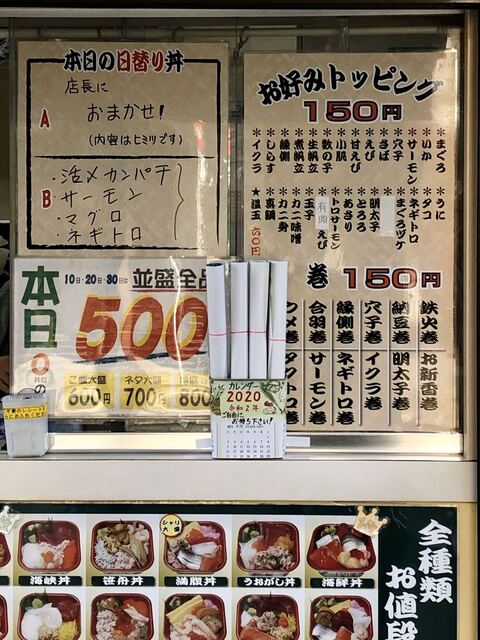 本日の日替り丼
店長に
A
おまかせ!
(内容はヒミツです)
B
・活〆カンパチ
・サーモン
・マグロ
・ネギトロ
お好みトッピング
150円
*まぐろ
*いか
*サーモン
*穴子
*さば
*えび
*甘えび
*小肌
*数の子
*生帆立
*煮帆立
*縁側
*しらす
*イクラ
うに
タコ
ネギトロ
まぐろヅケ
明太子
とろろ
あさり
トロサーモン
玉子
カニ味噌
カニ身
真鯛
★温玉
巻 150円
鉄火巻
納豆巻
穴子巻
縁側巻
合羽巻
お新香巻
明太子巻
イクラ巻
ネギトロ巻
サーモン巻
本日
10日・20日・30日は
並盛全品
500
600円
ネタ大盛
700円
800
カレンダー
2020
令和2年
ご自由に
お持ち下さい!
シャリ大盛
海峡丼
笹舟丼
満腹丼
うおがし丼
海鮮丼
全種類
お値段